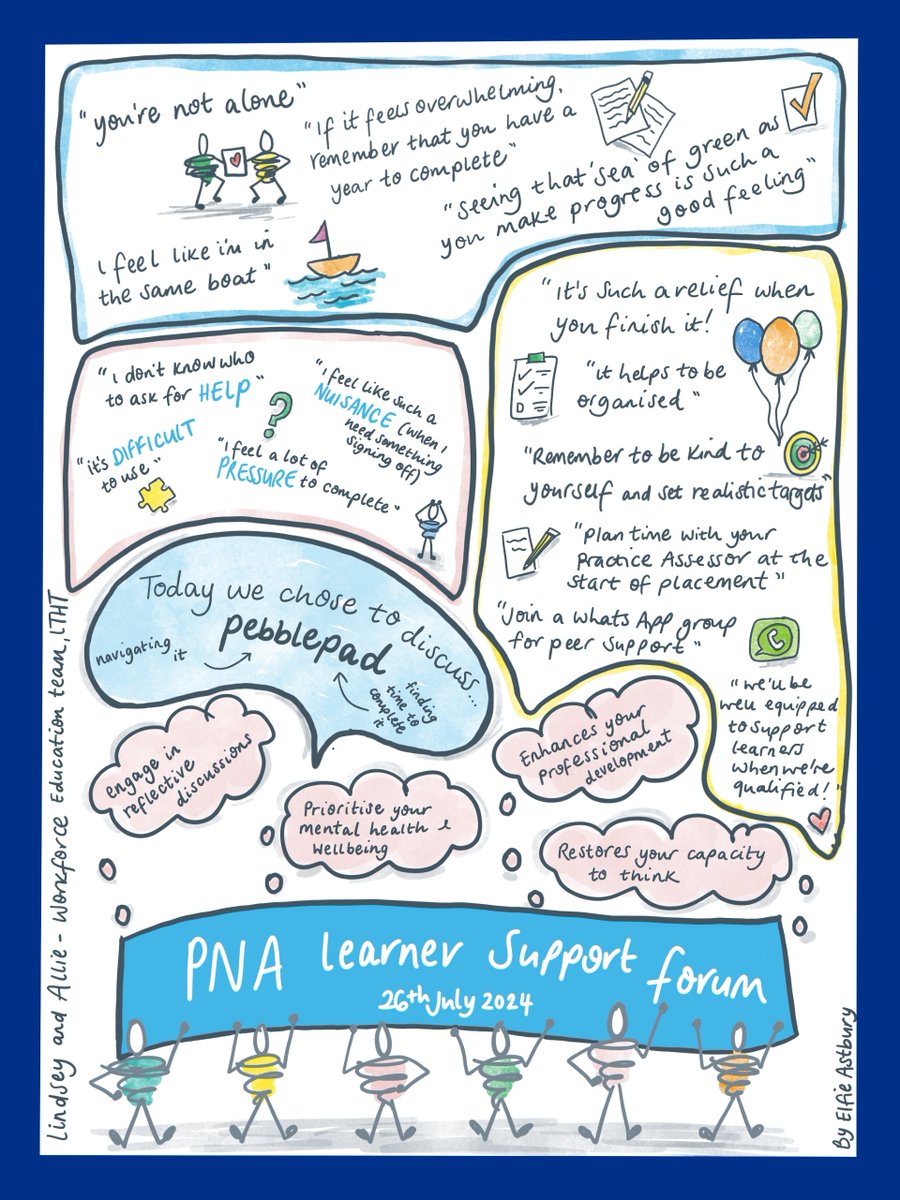 "you're not alone"
"If it feels overwhelming,
remember that you have a
year to complete"
"seeing that 'sea' of green as
you make progress is such a
good feeling"
I feel like i'm in
the same boat"
"I don't know who
to ask for HELP"
"I feel like such a
NUISANCE (when I
need something
signing off)
"it's DIFFICULT
to use"
"I feel a lot of
PRESSURE to complete"
"It's such a relief when
you finish it!
"it helps to be
organised"
"Remember to be kind to
yourself and set realistic targets"
"Plan time with your
Practice Assessor at the
start of placement"
"Join a WhatsApp group
for peer support"
"we'll be
well equipped
to support
learners
when we're
qualified!"
Today we chose to discuss...
pebblepad
navigating
it
finding
time to
complete
it
engage in
reflective
discussions
Prioritise your
mental health &
wellbeing
Enhances your
professional
development
Restores your capacity
to think
PNA Learner Support forum
26th July 2024
Lindsey and Allie - Workforce Education team, LTHT
By Elfie Astbury